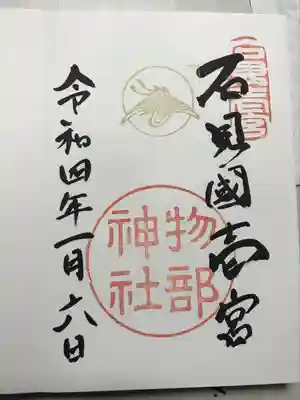 石見國一宮
物部
神社
令和四年一月六日